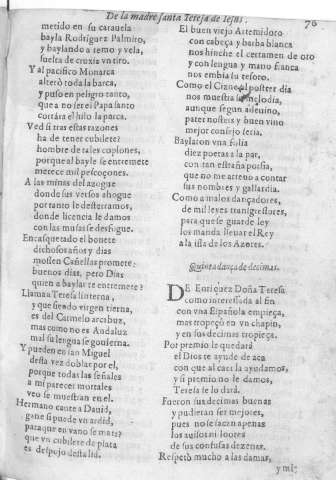 De la madre santa Teresa de Iesus. 76
metido en su carauela
bayla Rodriguez Palmiro,
y baylando a remo y vela,
suelta de cruxia vn tiro.
Y al pacifico Monarca
alterò toda la barca,
y puso en peligro tanto,
que a no ser el Papa santo
cortára el hilo la parca.
Ved si tras estas razones
ha de tener cubilete?
hombre de tales coplones,
porque al bayle se entremete
merece mil pescoçones.
A las minas del azogue
donde sus versos ahogue
por tanto le desterramos,
donde licencia le damos
con las musas se desfogue.
Encasquetado el bonete
dichosos años y dias
mossen Cañellas promete:
buenos dias, pero Dias
quien a baylar te entremete?
Llaman Teresa linterna,
y que siendo virgen tierna,
es del Carmelo arcabuz,
mas como no es Andaluz
mal su lengua se gouierna.
Y pueden en san Miguel
desta vez doblar por el,
porque todas las señales
a mi parecer mortales
veo se muestran en el.
Hermano cante a Dauid,
gane si puede vn ardid,
para que en vano se mata?
que vn cubilete de plata
es despojo desta lid.
El buen viejo Artemidoro
con cabeça y barba blanca
nos hinche el certamen de oro
y con lengua y mano franca
nos embia su tesoro.
Como el Cizne al postrer dia
nos muestra su melodia,
aunque segun adeuino,
pater nosteis y buen vino
mejor consejo seria.
Baylaron vna folia
diez poetas a la par,
con tan estraña poesia,
que no me atreuo a contar
sus nombres y gallardia.
Como a malos dançadores,
de mil leyes transgressores,
para que se guarde ley
los manda lleuar el Rey
a la isla de los Azores.
Quinta dança de decimas.
DE Enriquez Doña Teresa
como interessada al fin
con vna Española empieça,
mas tropeçò en vn chapin,
y en sus decimas tropieça.
Por premio le quedarà
el Dios te ayude de acà
con que al caer la ayudamos,
y si premio no le damos,
Teresa se lo darà.
Fueron sus decimas buenas
y pudieran ser mejores,
pues no se sacan apenas
los auisos ni loores
de sus confusas dezenas.
Respetò mucho a las damas,
y mil